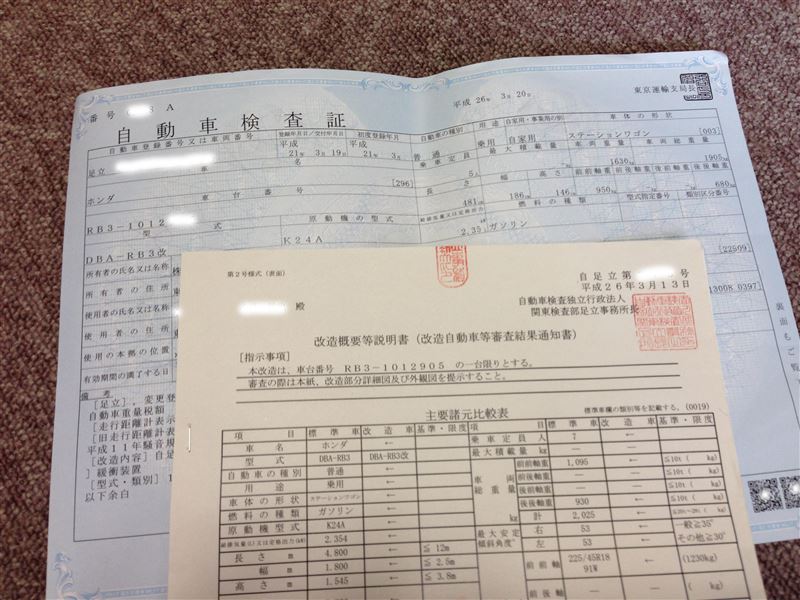 番号
A
平成 26年 3月 20日
東京運輸支局長
自動車検査証
自動車登録番号又は車両番号
登録年月日/交付年月日
初度登録年月
自動車の種別
用途
自家用・事業用の別
車体の形状
足立
平成
21年 3月 19日
平成
21年 3月
普通
乗用
自家用
ステーションワゴン
[003]
車名
乗車定員
最大積載量
車両重量
車両総重量
ホンダ
[296]
5人
1630kg
1905kg
車台番号
長さ
幅
高さ
前前軸重
前後軸重
後前軸重
後後軸重
RB3-1012
481cm
186cm
146cm
950kg
680kg
型式
原動機の型式
総排気量又は定格出力
燃料の種類
型式指定番号
類別区分番号
DBA-RB3改
K24A
2.35
ガソリン
所有者の氏名又は名称
[22509]
所有者の住所
13008 0397]
使用者の氏名又は名称
使用者の住所
使用の本拠の位置
有効期間の満了する日
備考
[足立], 変更登
自動車重量税額
[走行距離計表示
[旧走行距離計表
平成11年騒音規
[改造内容] 自足
] 緩衝装置
[型式・類別] 1
以下余白
裏面もご
第2号様式(表面)
自足立第 号
平成26年3月13日
殿
自動車検査独立行政法人
関東検査部足立事務所長
改造概要等説明書(改造自動車等審査結果通知書)
[指示事項]
本改造は、車台番号 RB3-1012905 の一台限りとする。
審査の際は本紙、改造部分詳細図及び外観図を提示すること。
主要諸元比較表
標準車欄の類別等を記載する。(0019)
項目 標準車 改造車 基準・限度 項目 標準車 改造車 基準・限度
車名 ホンダ ← 乗車定員 人 7
型式 DBA-RB3 DBA-RB3改 最大積載量 kg
自動車の種別 普通 ← 車両総重量 kg 前前軸重 1,095 ← ≦10t ( kg)
用途 乗用 ← 前後軸重 ≦10t ( kg)
車体の形状 ステーションワゴン ← 後前軸重 ≦10t ( kg)
燃料の種類 ガソリン ← 後後軸重 930 ← ≦10t ( kg)
原動機型式 K24A ← 計 2,025 ←
総排気量(L)又は定格出力(kW) 2.354 ← 最大安定傾斜角度 右 53 ← 一般≧35°
長さ m 4.800 ← ≦ 12m 左 53 ← その他≧30°
幅 m 1.800 ← ≦ 2.5m 前前軸 225/45R18 91W ← (1230kg)
高さ m 1.545 ← ≦ 3.8m 前後軸 ( kg)